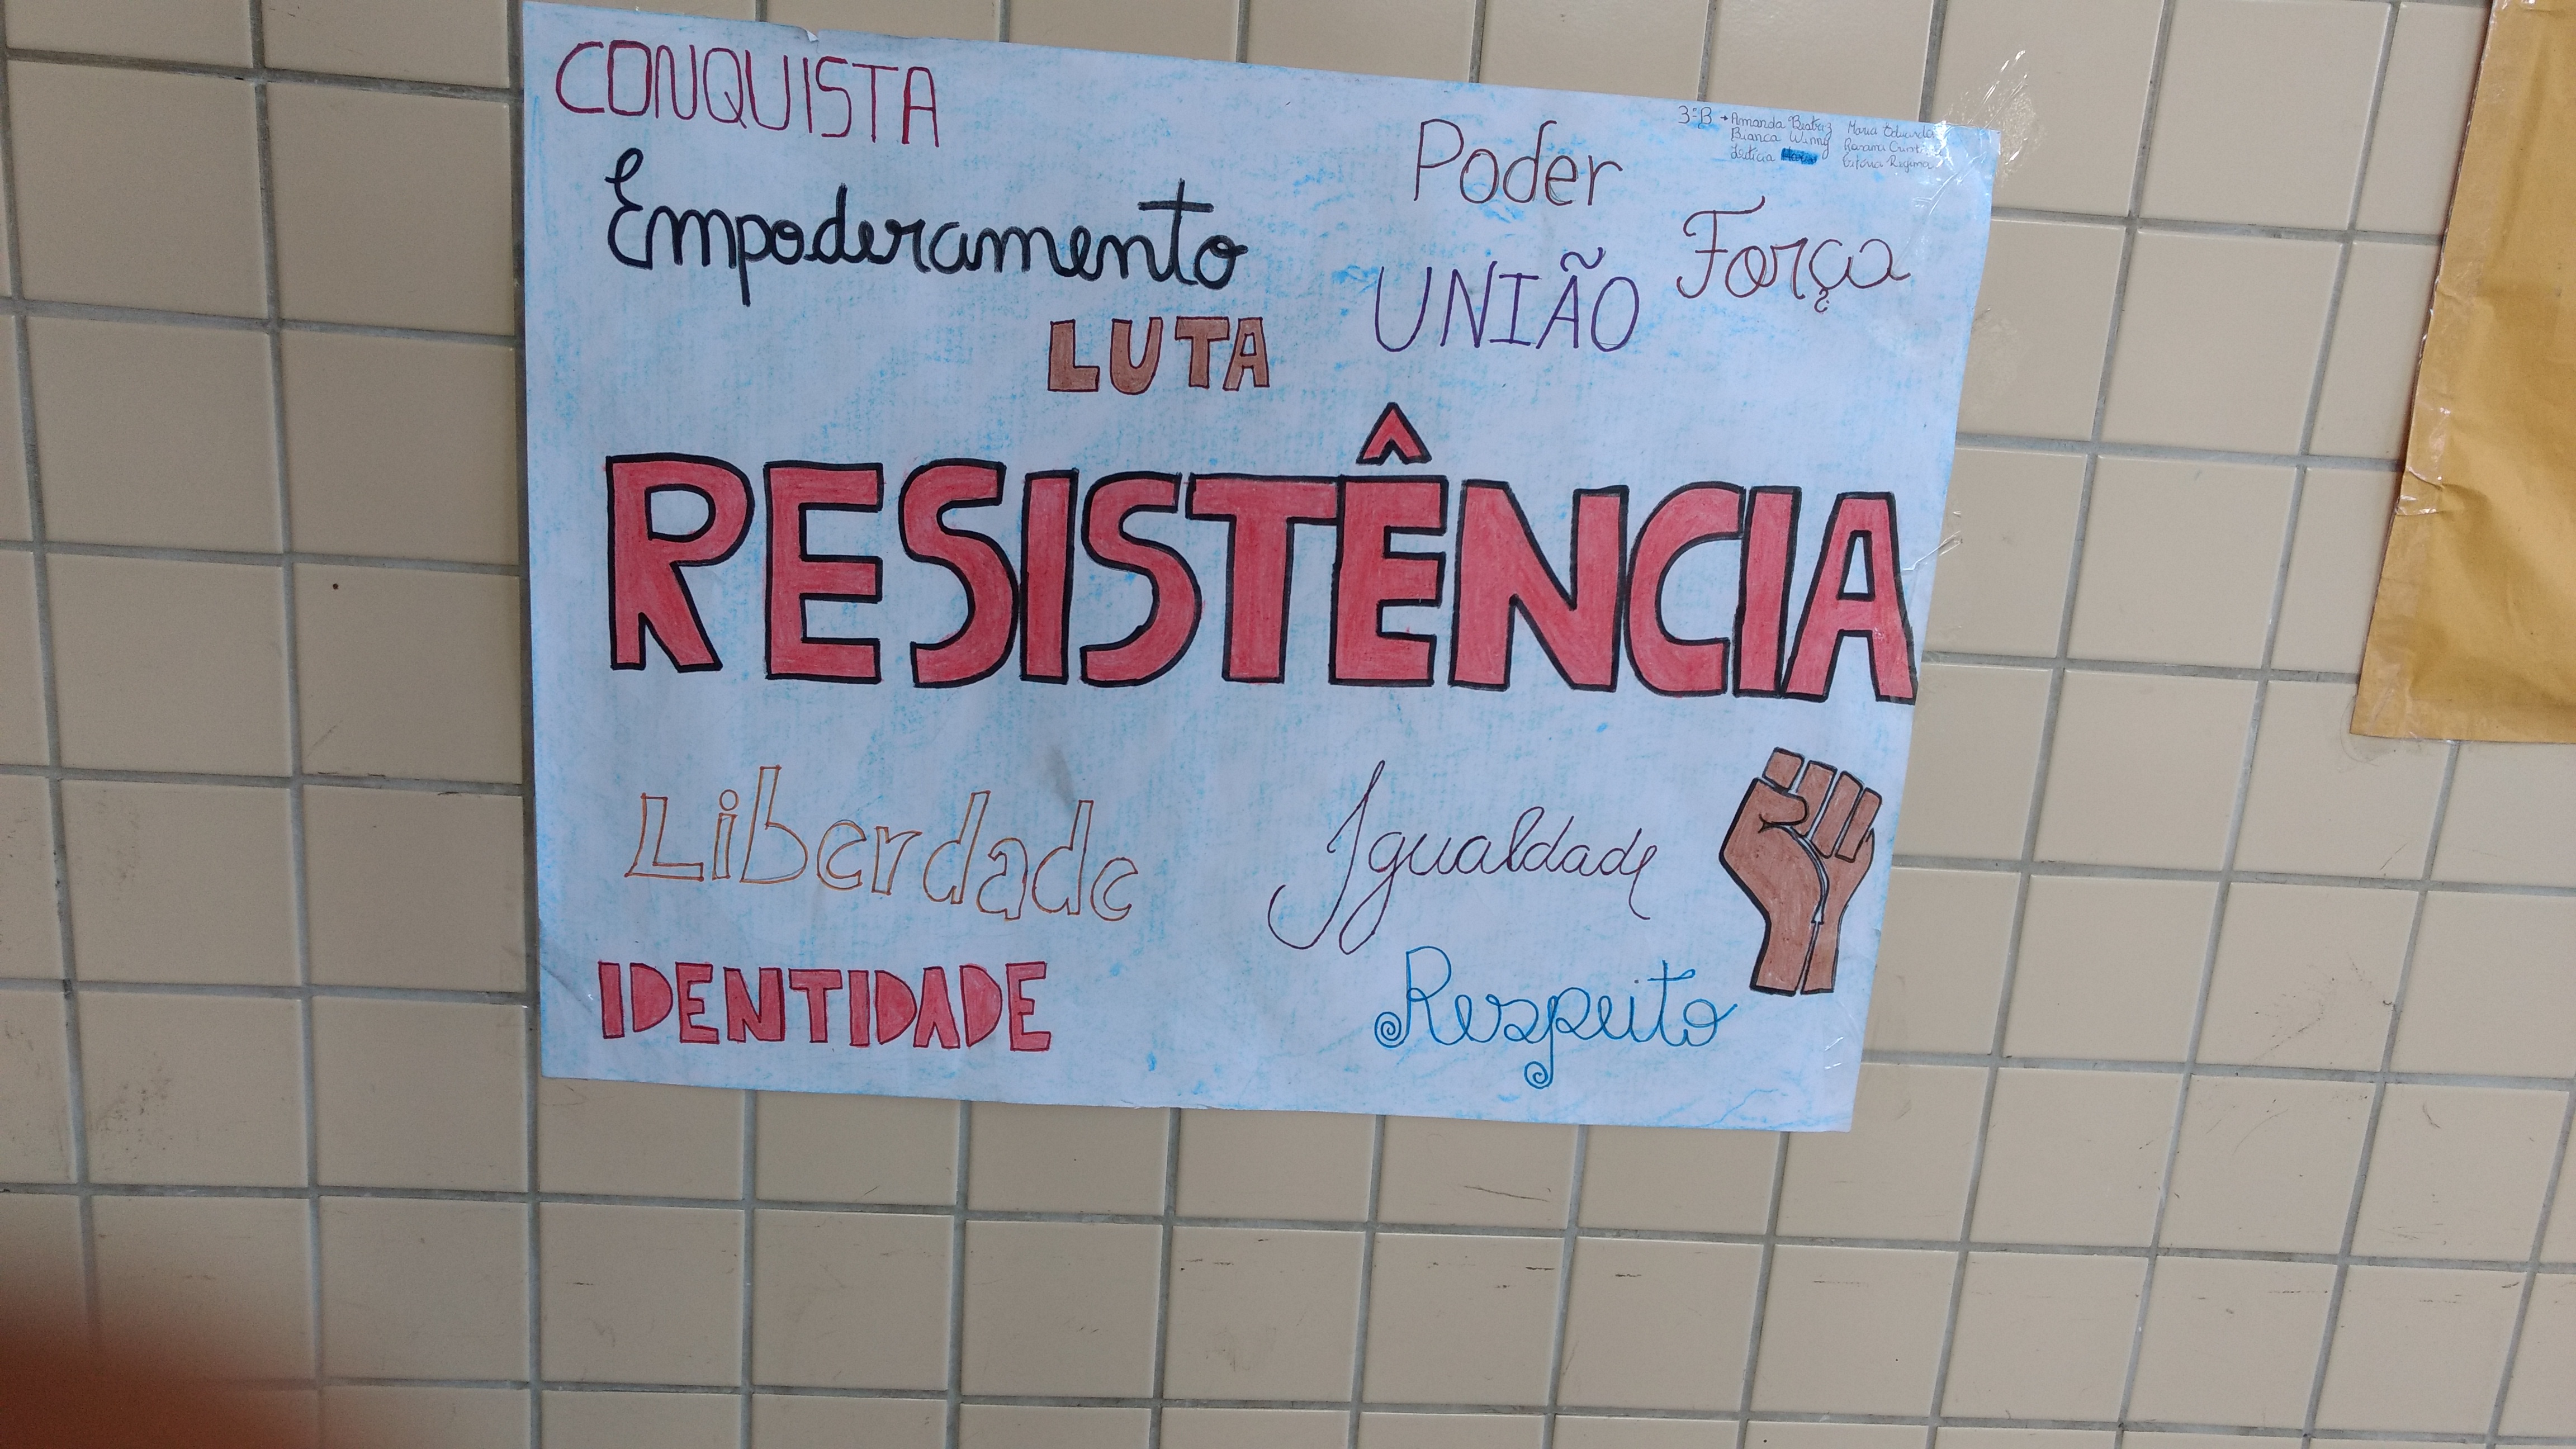 CONQUISTA
3º B → Amanda Beatriz
Bianca Winny
Letícia
Maria Eduarda
Vitória Regina
Poder
Empoderamento
Força
UNIÃO
LUTA
RESISTÊNCIA
Liberdade
Igualdade
IDENTIDADE
Respeito